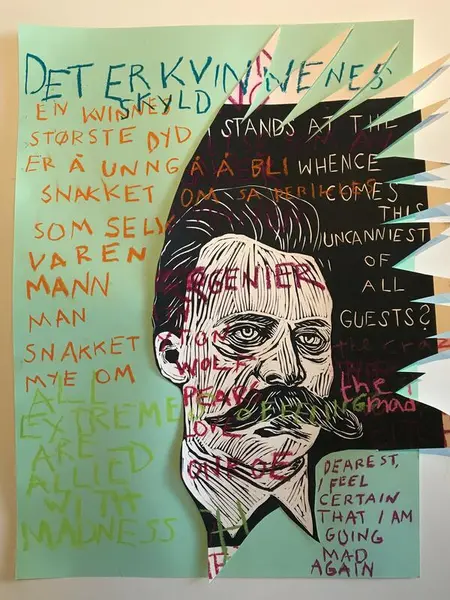 DET ER KVINNENES
SKYLD
EN KVINNES
STØRSTE DYD
ER Å UNNGÅ Å BLI
SNAKKET OM SA PERIKLES
SOM SELV
VAR EN
MANN
MAN
SNAKKET
MYE OM
ALL
EXTREMES OF FEELING
ARE
ALLIED
WITH
MADNESS
STANDS AT THE
WHENCE
COMES
THIS
UNCANNIEST
OF
ALL
GUESTS?
WOLF
PEARS
the
mad
DEAREST,
I FEEL
CERTAIN
THAT I AM
GOING
MAD
AGAIN